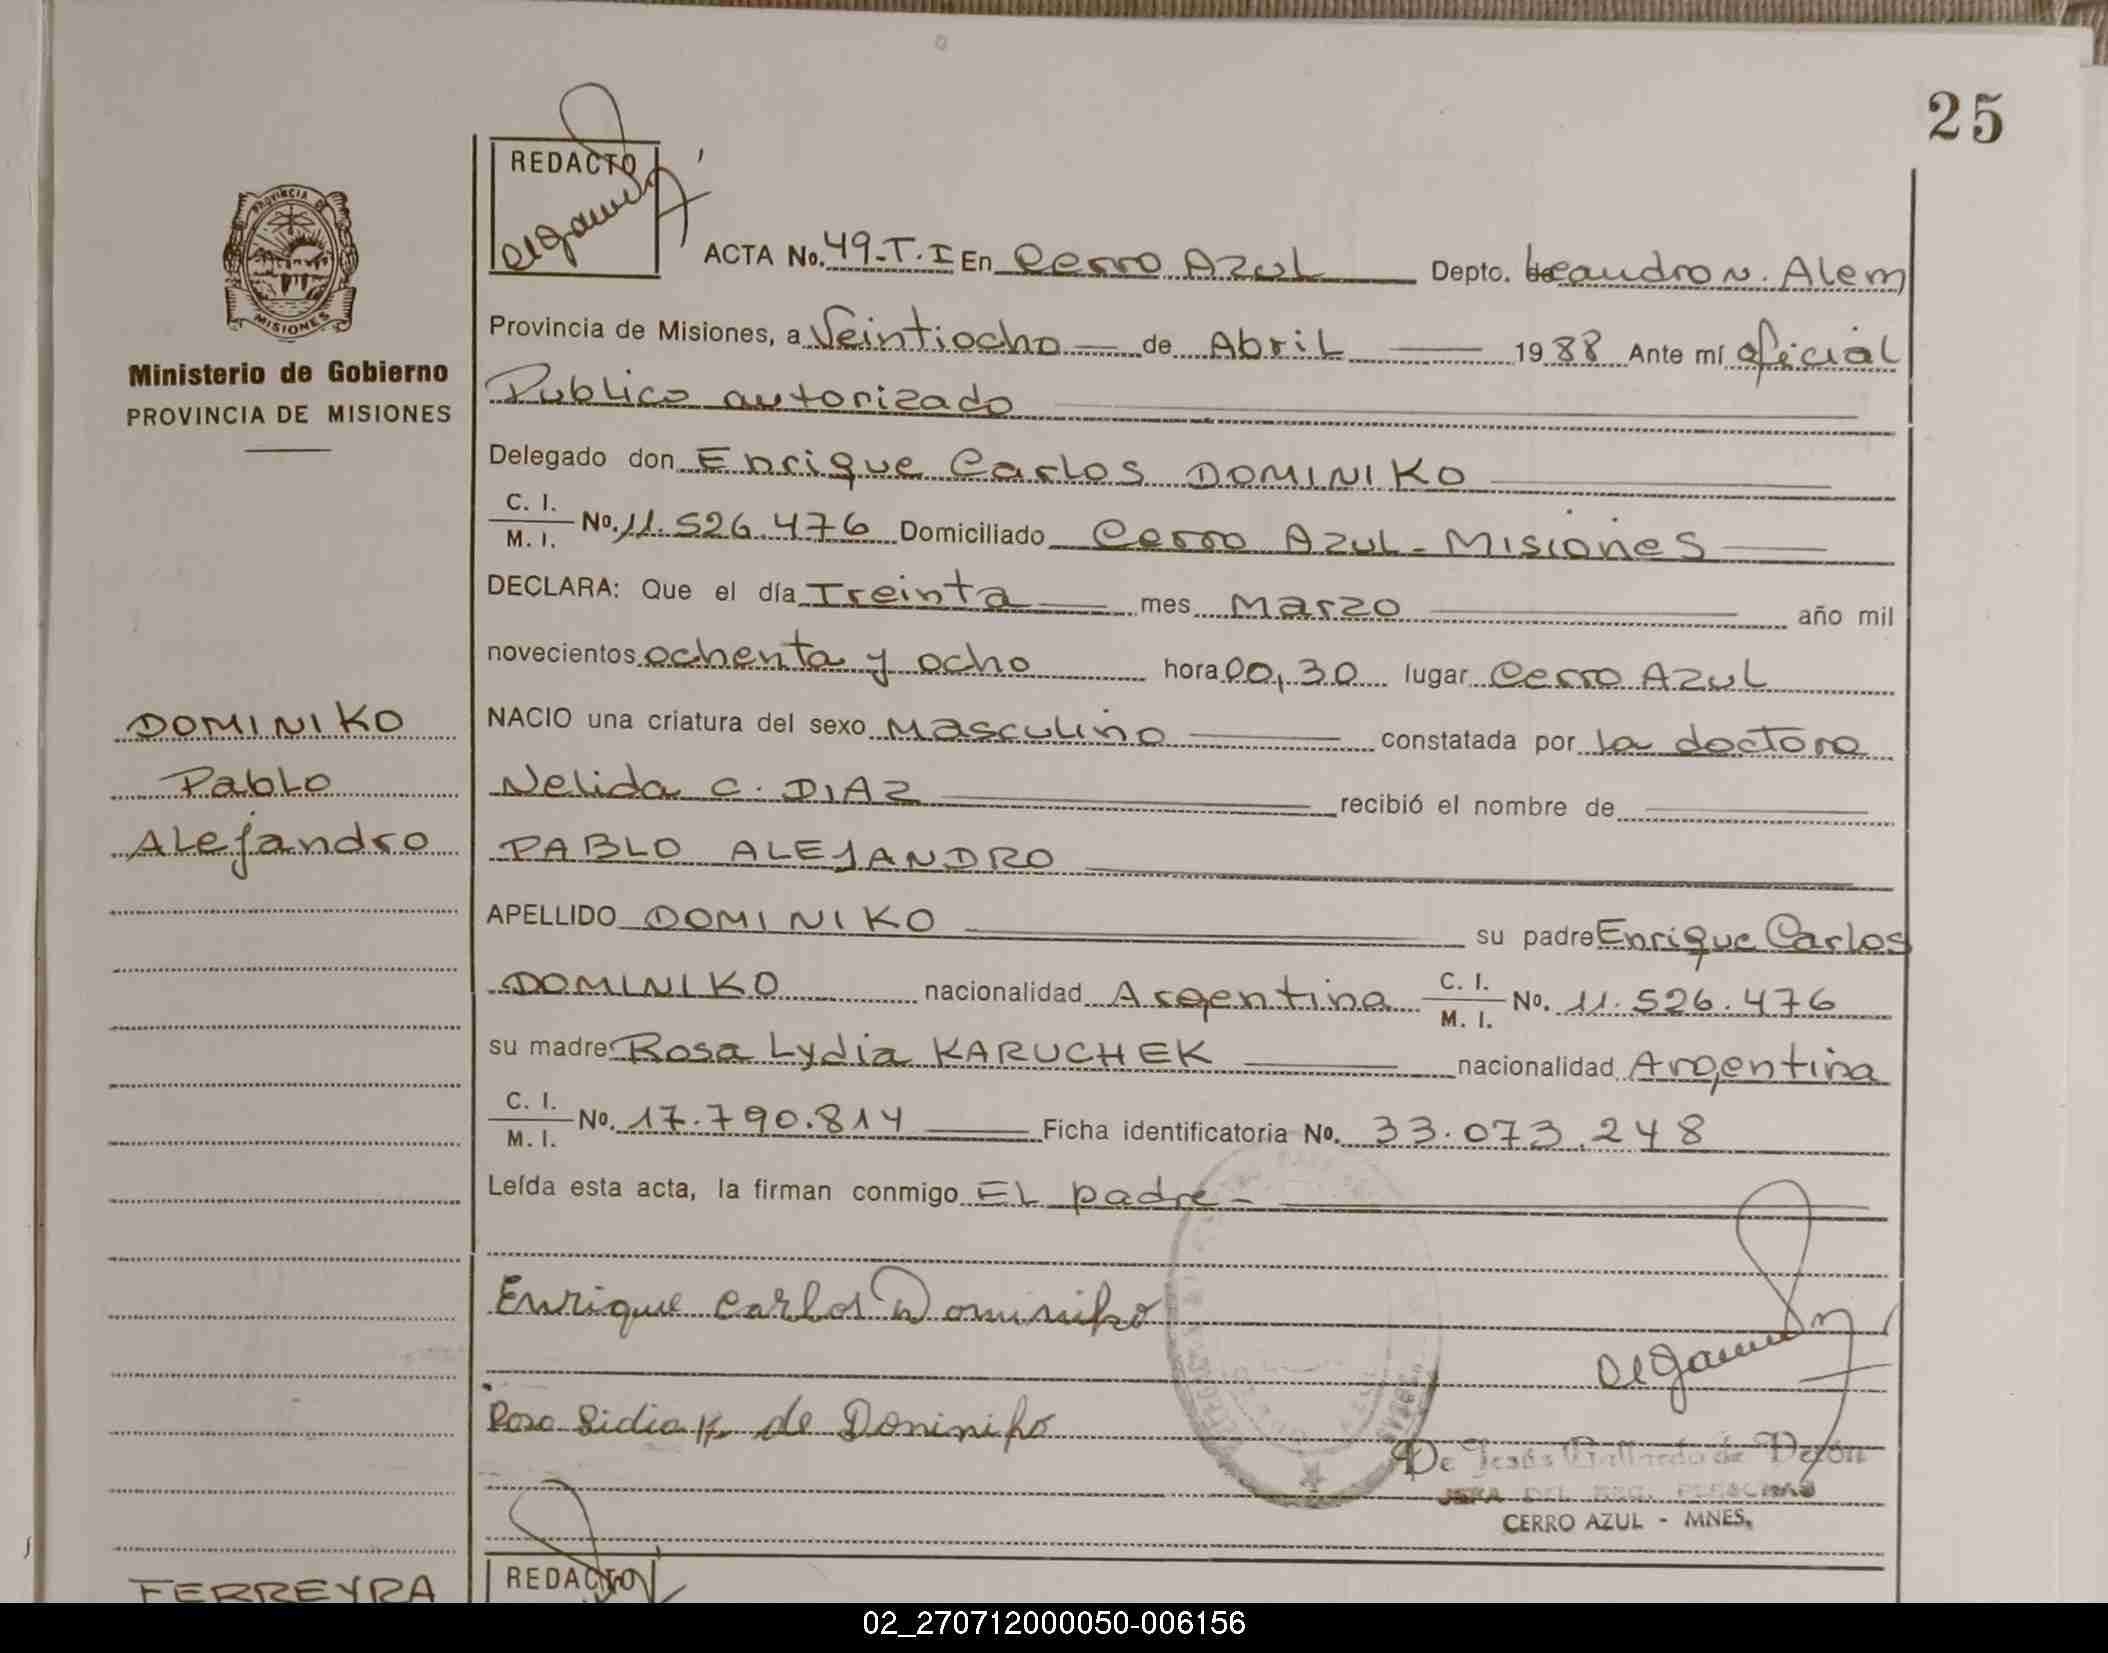 25
REDACTO
PROVINCIA DE
MISIONES
ACTA No. 49-T.I En Cerro Azul Depto. Leandro N. Alem
Ministerio de Gobierno
PROVINCIA DE MISIONES
Provincia de Misiones, a Veintiocho de Abril 1988 Ante mí oficial
Publico autorizado
Delegado don Enrique Carlos DOMINIKO
C. I.
M. I. No. 11.526.476 Domiciliado Cerro Azul - Misiones
DECLARA: Que el día Treinta mes Marzo año mil
novecientos ochenta y ocho hora 00,30 lugar Cerro Azul
DOMINIKO
Pablo
Alejandro
NACIO una criatura del sexo Masculino constatada por la doctora
Nelida C. DIAZ recibió el nombre de
PABLO ALEJANDRO
APELLIDO DOMINIKO su padre Enrique Carlos
DOMINIKO nacionalidad Argentina C. I. M. I. No. 11.526.476
su madre Rosa Lydia KARUCHEK nacionalidad Argentina
C. I.
M. I. No. 17.790.814 Ficha identificatoria No. 33.073.248
Leída esta acta, la firman conmigo El padre -
Enrique Carlos Dominiko
Rosa Lidia K. de Dominiko
De Jesús Gallardo de
JEFA DEL REG. PERSONAS
CERRO AZUL - MNES.
FERREYRA
REDACTO
02_270712000050-006156